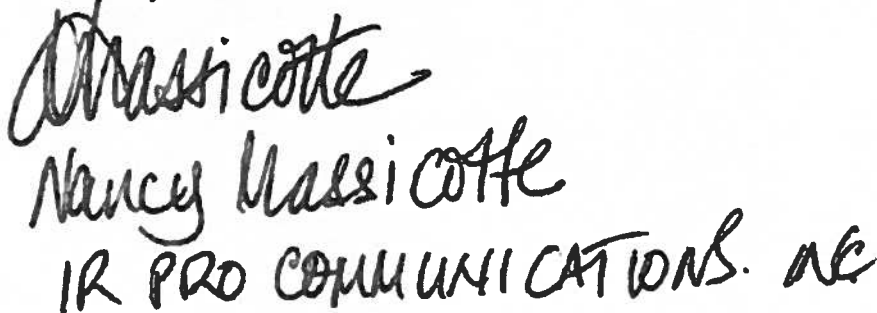 NMassicotte
Nancy Massicotte
IR PRO COMMUNICATIONS. INC